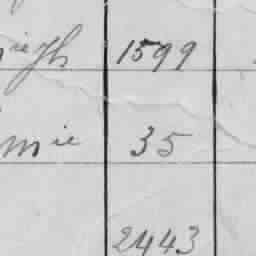 1599
mie 35
2443